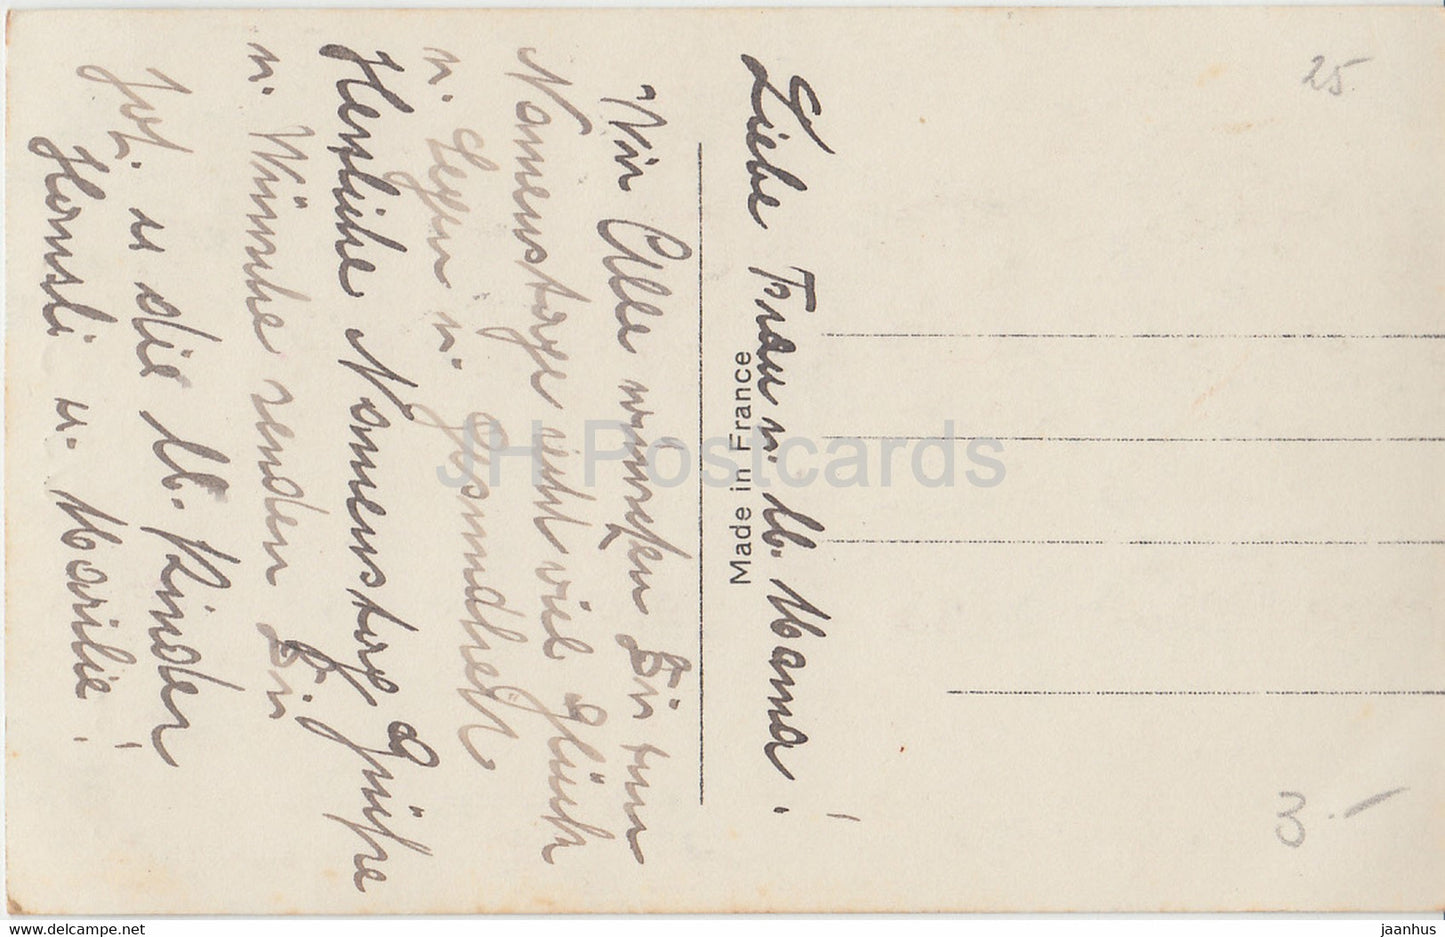 Liebe Frau u. lb. Mama!
Wir Alle wünschen Dir zum
Namenstage recht viel Glück
u. Segen u. Gesundheit
Herzliche Namenstag Grüße
u. Wünsche senden Dir
u die lb. Kinder
Hansli u. Marilie!
Made in France
25
3.-
JH Postcards
www.delcampe.net
jaanhus